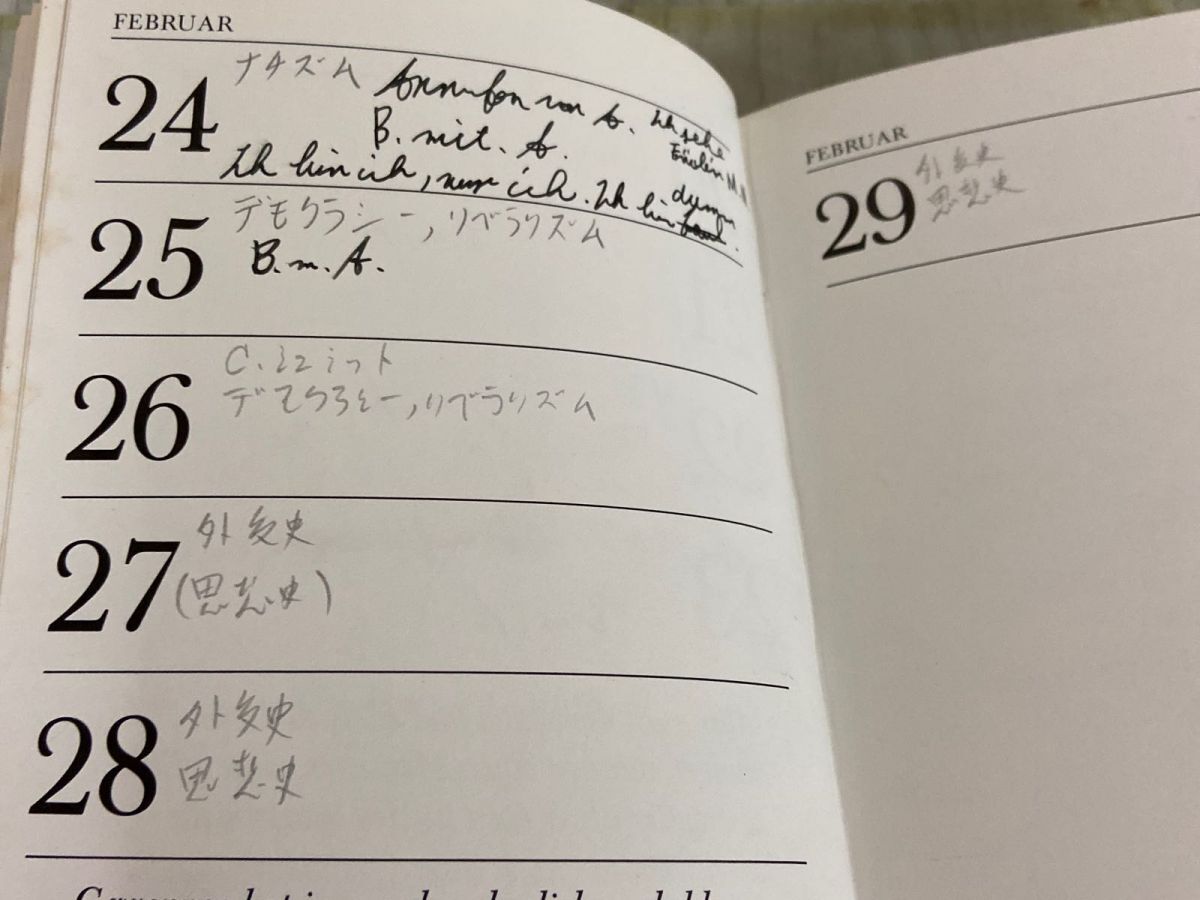 FEBRUAR
24
ナチズム
Anrufen von A. Ich sehe
B. mit. A.
Ich bin ich, nur ich. Ich bin
25
デモクラシー, リベラリズム
B. m. A.
26
C. シュミット
デモクラシー, リベラリズム
27
外交史
(思想史)
28
外交史
思想史
FEBRUAR
29
外交史
思想史